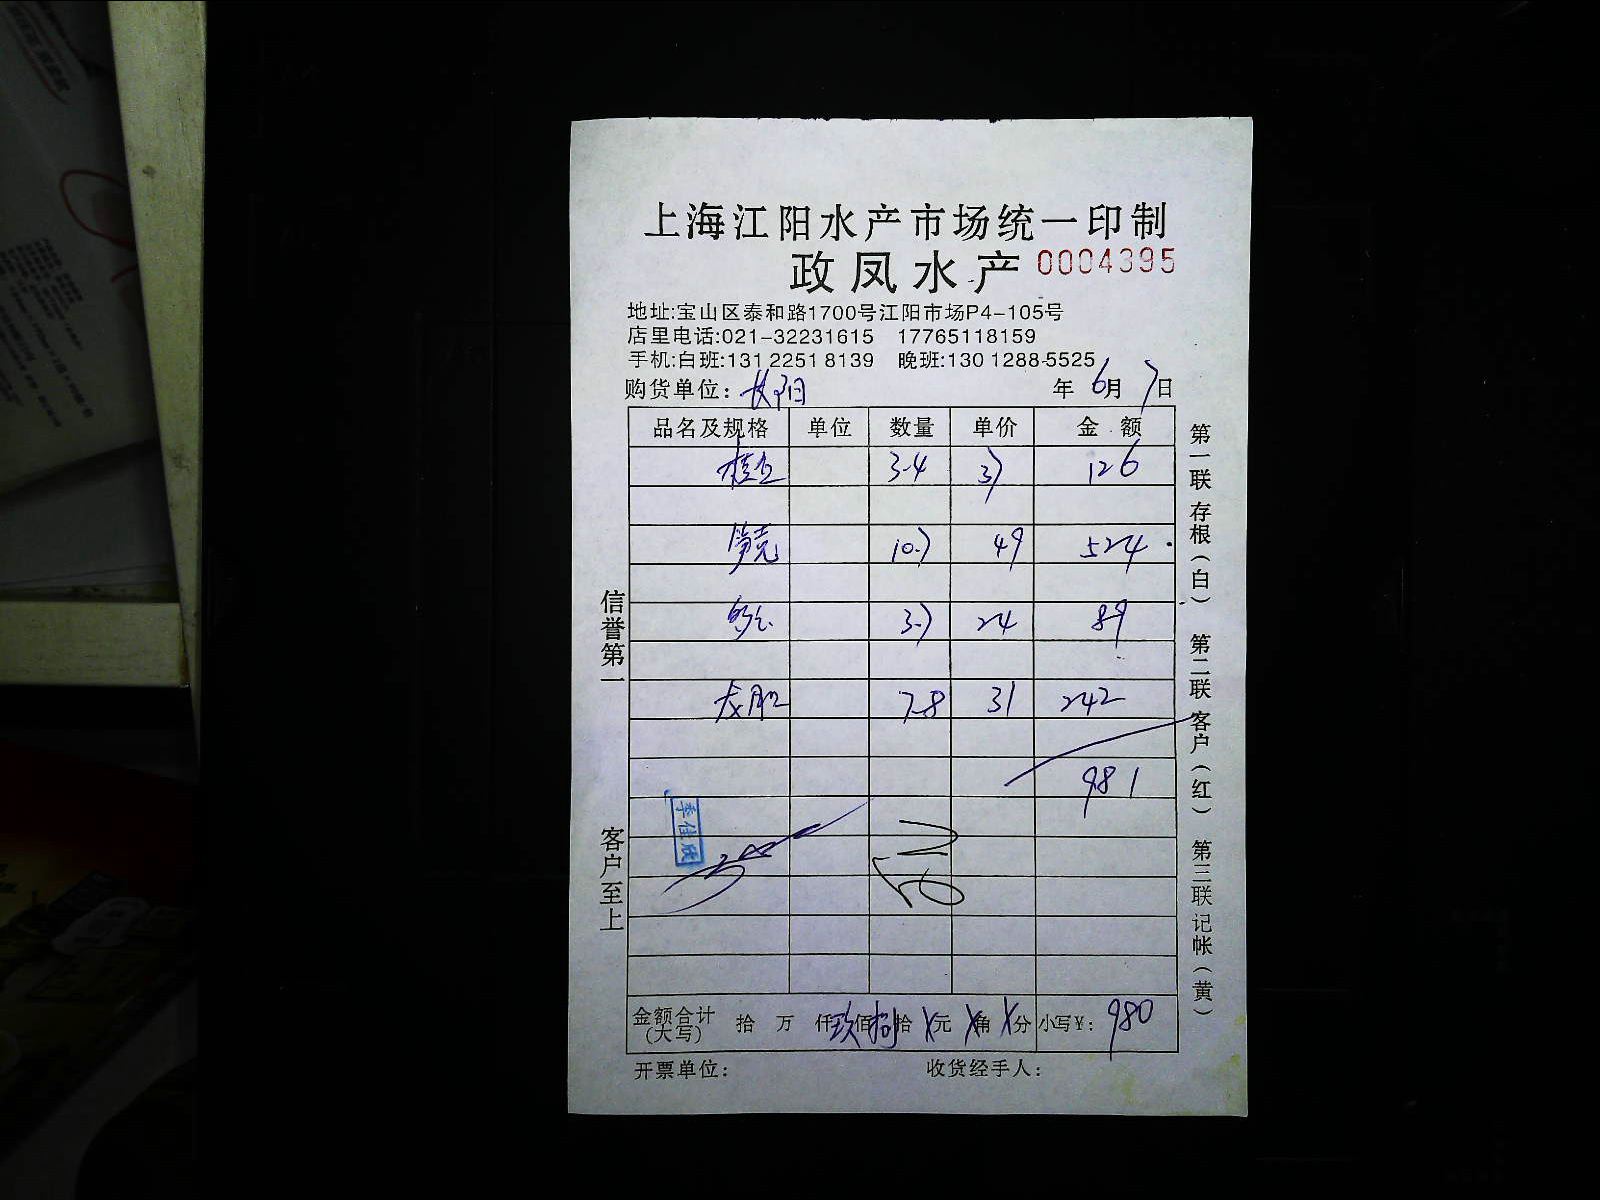 上海江阳水产市场统一印制
政凤水产 0004395
地址:宝山区泰和路1700号江阳市场P4-105号
店里电话:021-32231615 17765118159
手机:白班:131 2251 8139 晚班:130 1288 5525
购货单位: 长阳 年 6月 7日
品名及规格 单位 数量 单价 金额
桂鱼 3.4 37 126
10.7 49 524
3.7 24 89
7.8 31 242
981
李佳欣
金额合计(大写) 拾 万 仟 玖佰 捌拾 X元 X角 X分 小写¥: 980
开票单位: 收货经手人:
信誉第一
客户至上
第一联 存根(白)
第二联 客户(红)
第三联 记帐(黄)